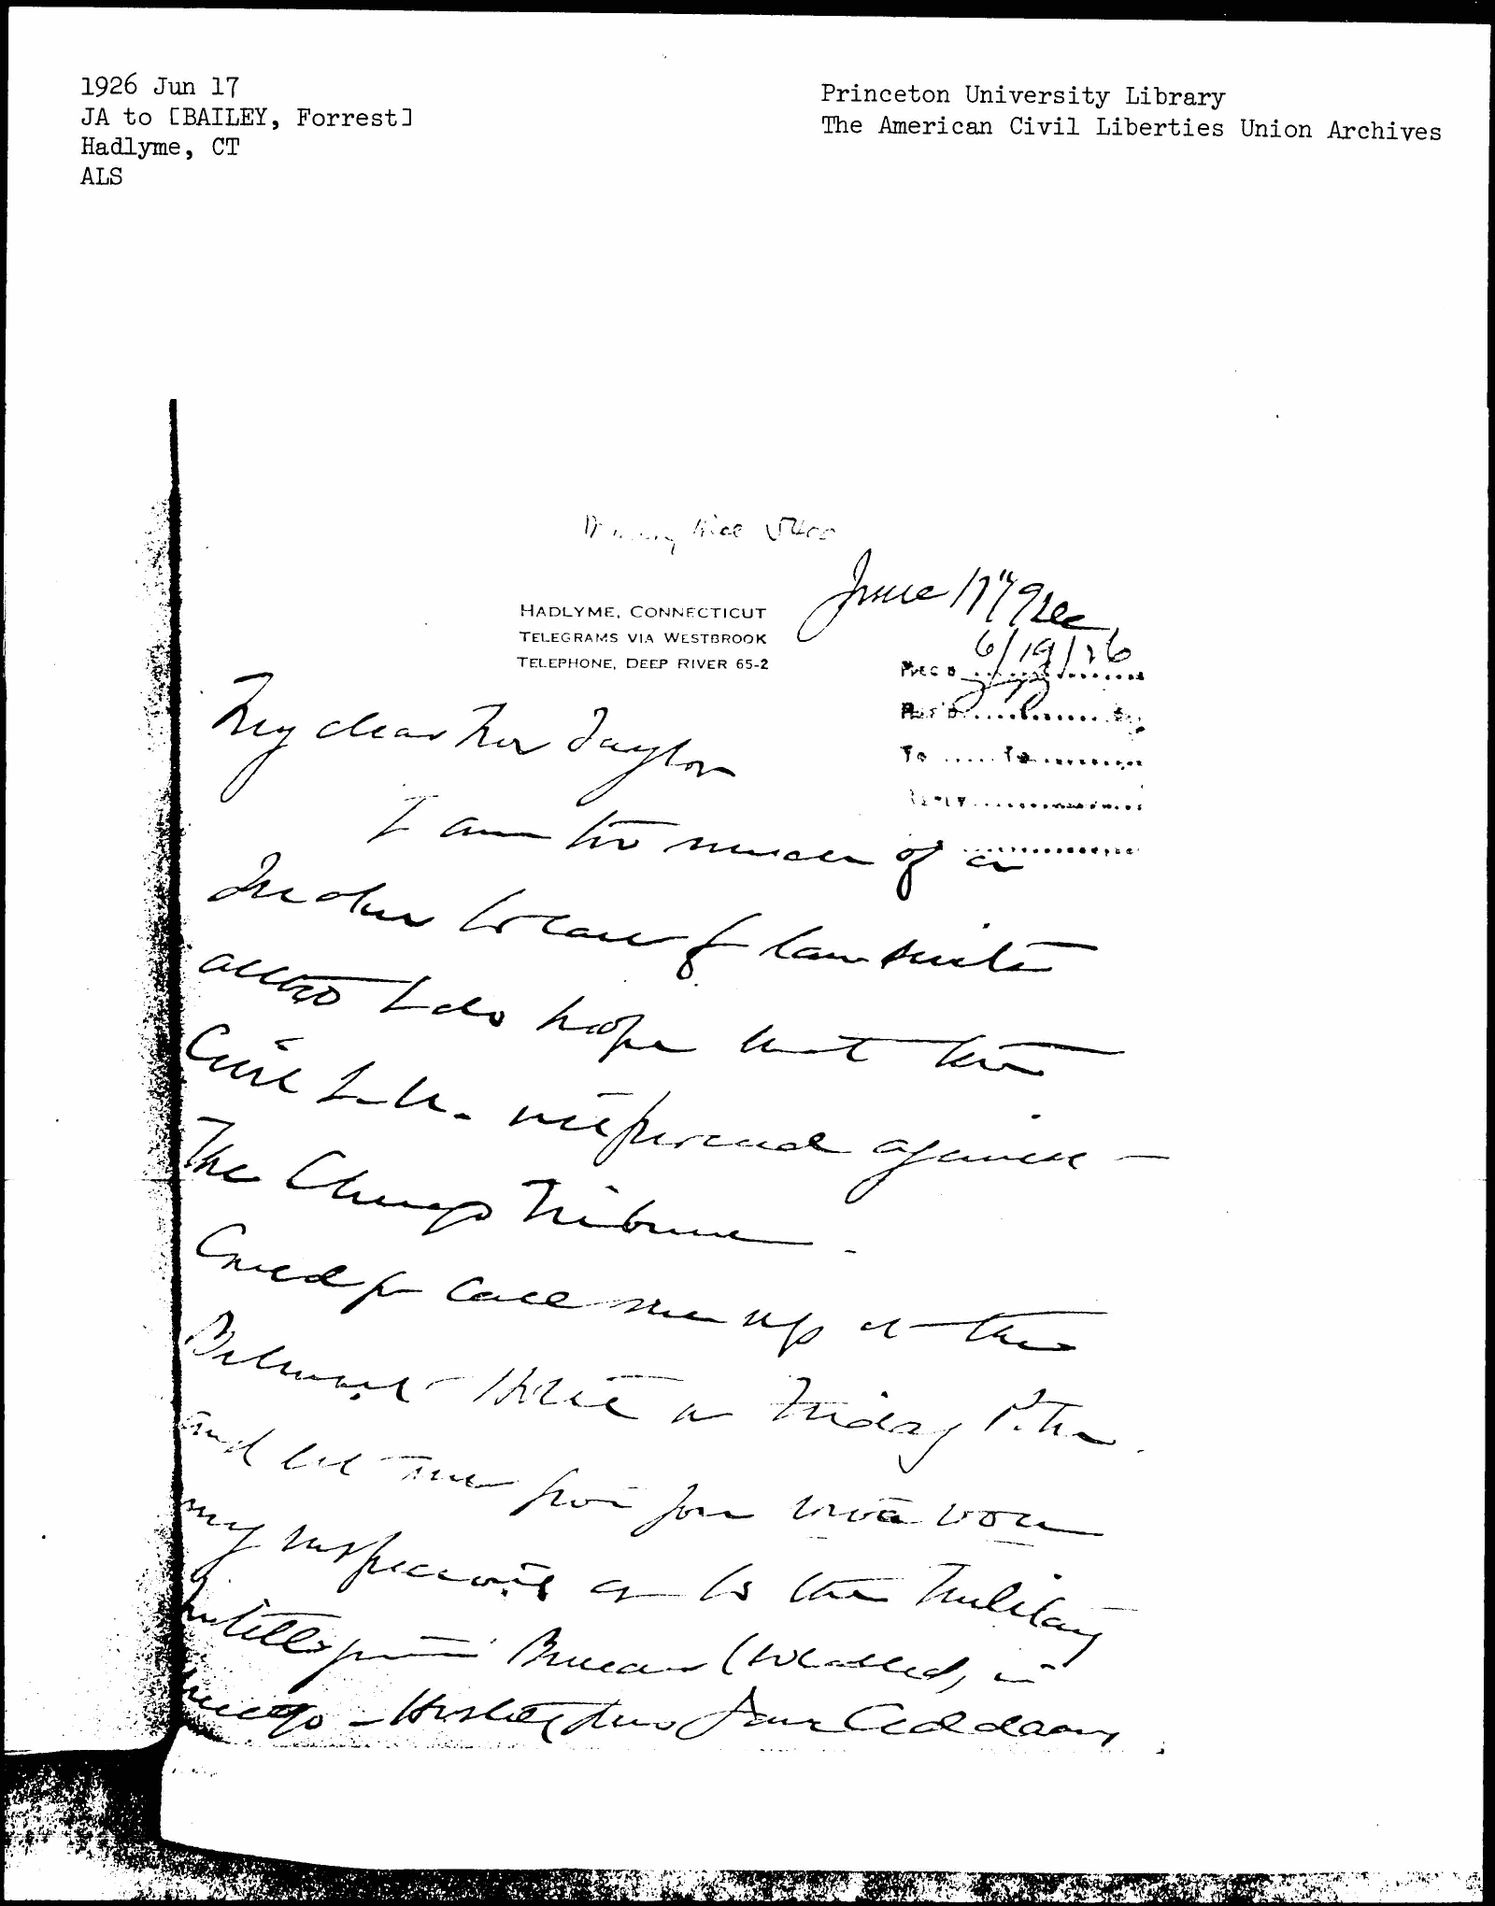 1926 Jun 17
JA to [BAILEY, Forrest]
Hadlyme, CT
ALS
Princeton University Library
The American Civil Liberties Union Archives
June 17"
HADLYME, CONNECTICUT
TELEGRAMS VIA WESTBROOK
TELEPHONE, DEEP RIVER 65-2
6/19/26
REC'D
To
My dear Mr
I am too much of a
to care for law suits
I do hope that the
Civil L. U. will proceed against
The Chicago Tribune.
Could you call me up at the
Belmont Hotel on Friday P.M.
and let me
my suspicions as to the Military
Intelligence Bureau (located, in
Chicago - Hastily yours Jane Addams.